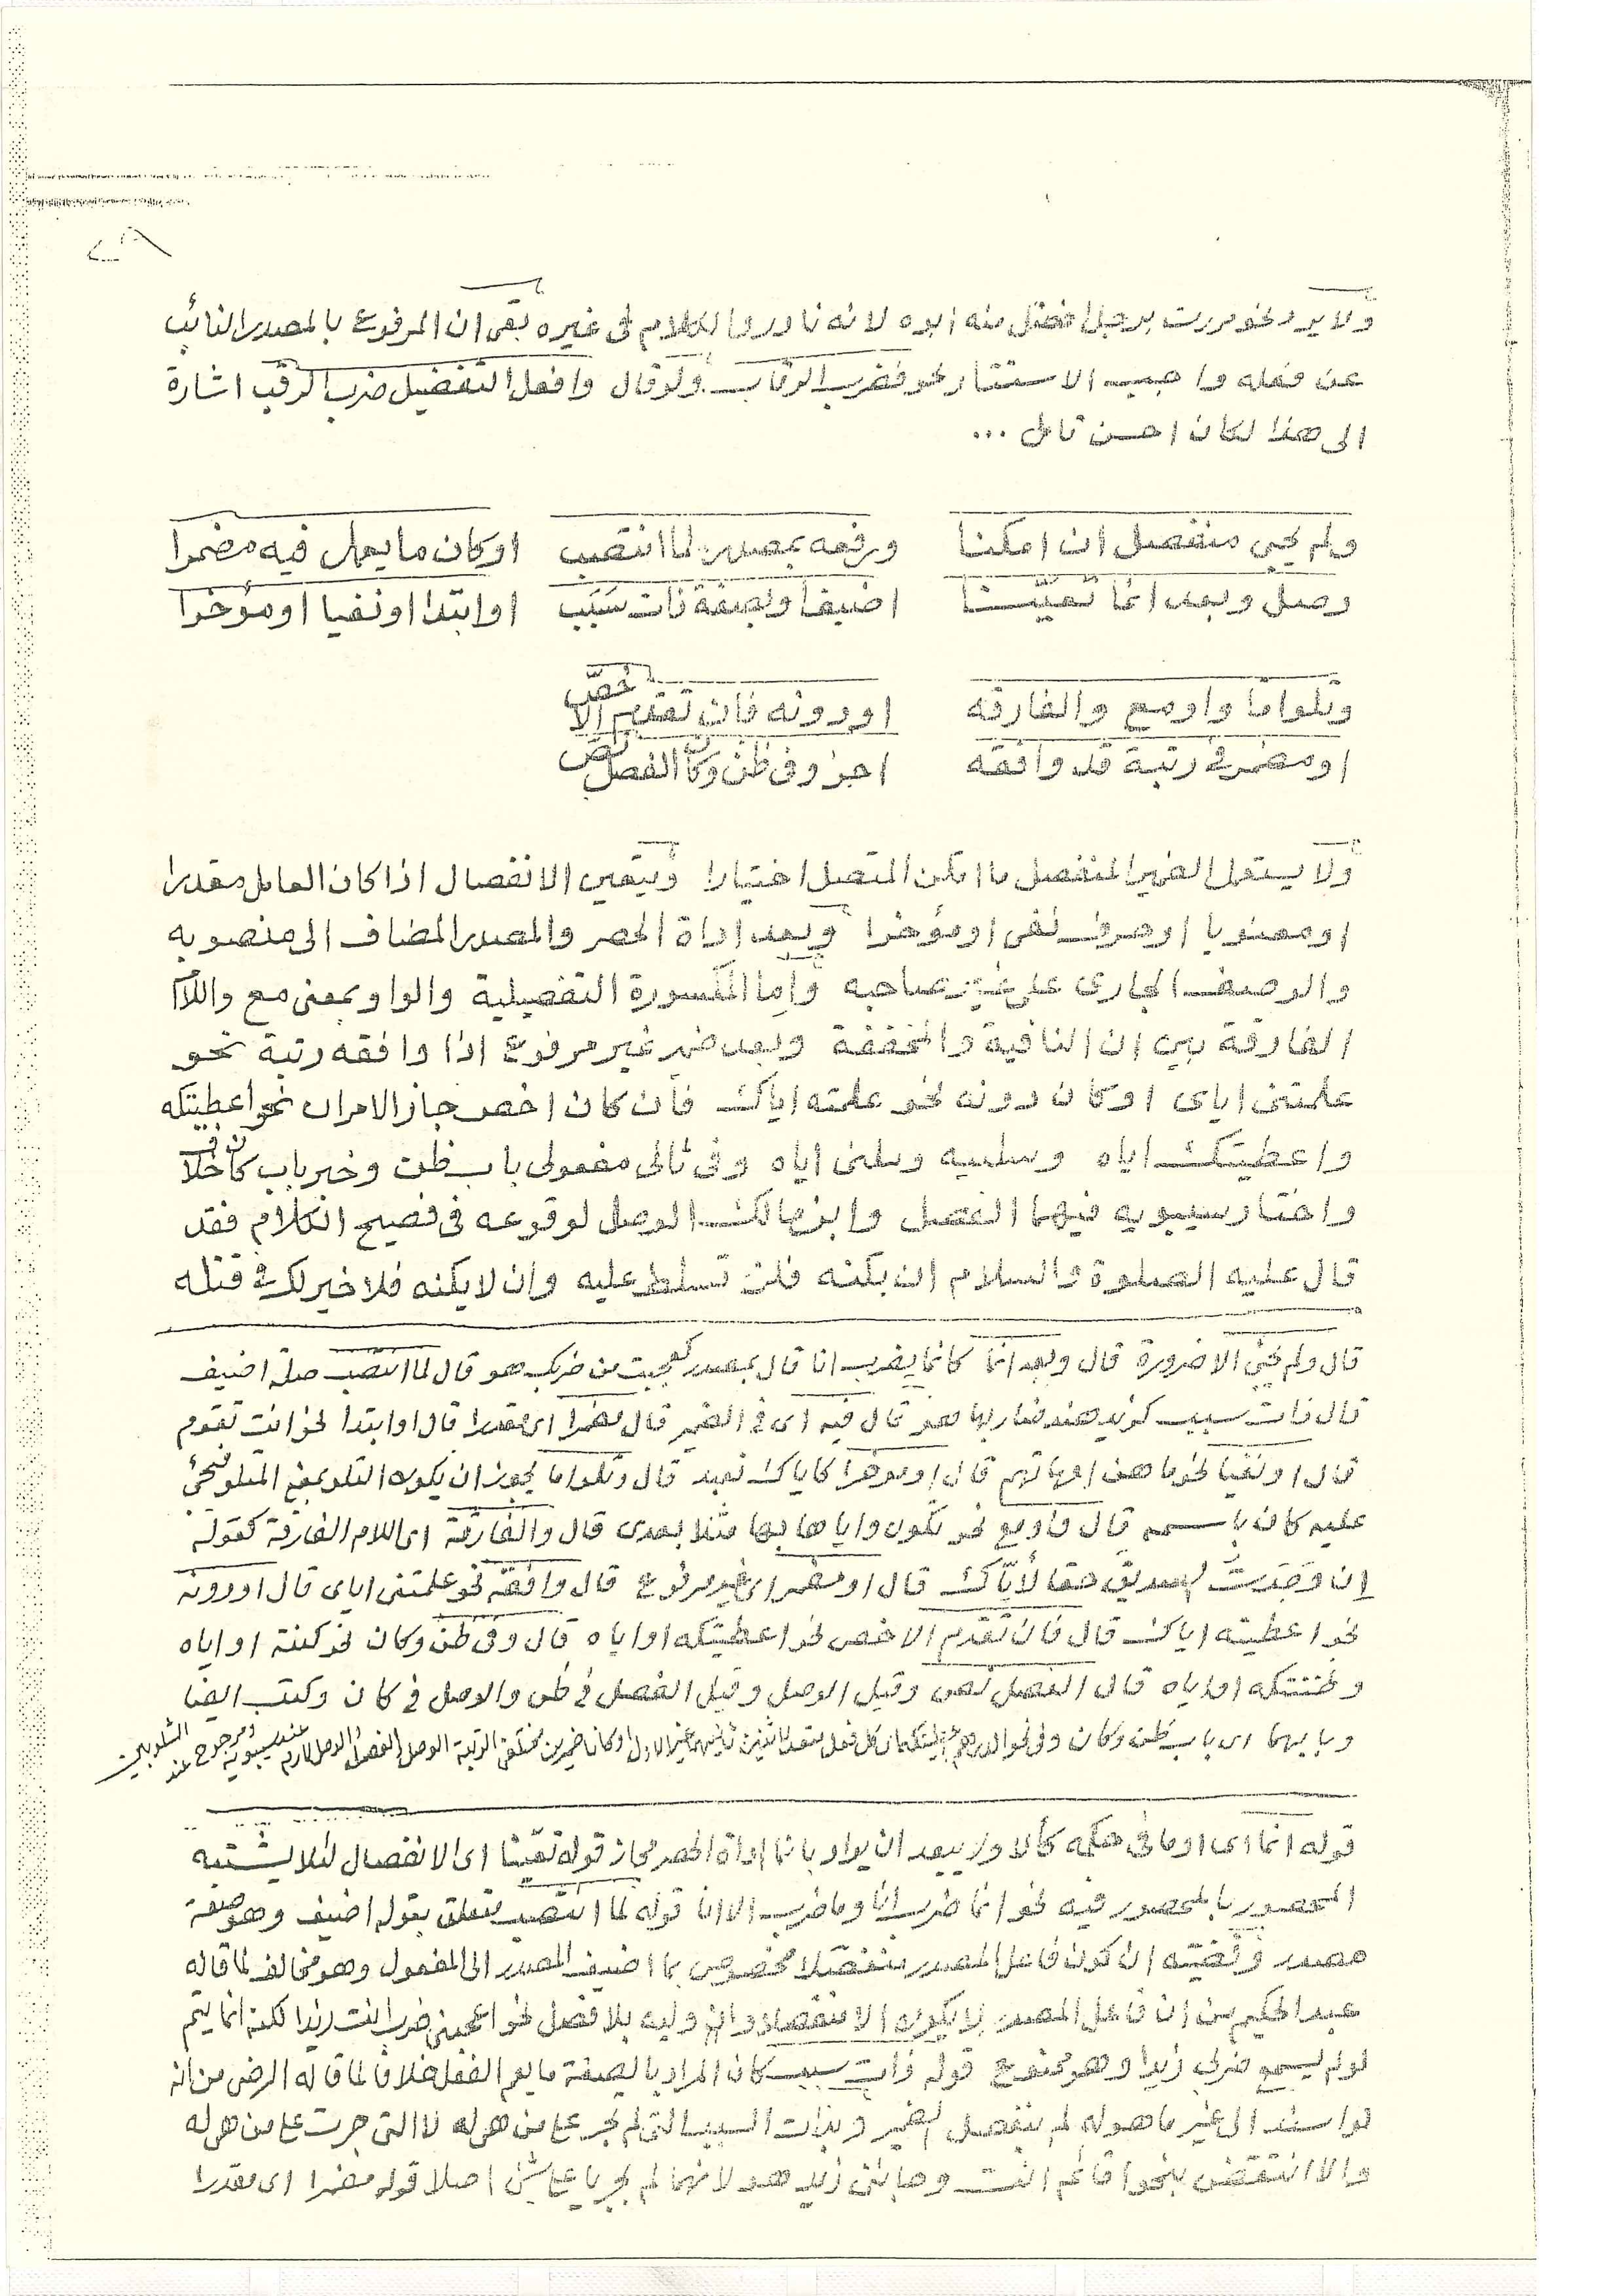 ولا يرد نحو مررت برجل افضل منه ابوه لانه نادر والكلام فى غيره بقى ان المرفوع بالمصدر النائب
عن فعله واجب الاستتار نحو فضرب الرقاب ولو قال وافعل التفضيل ضرب الرقب اشارة
الى هذا لكان احسن تامل ...
ولم يجئ منفصل ان امكنا ورفعه بمصدر لما انتصب او كان ما يعمل فيه مضمرا
وصل وبعد انما تعينا اضيفا وبصفة ذات سبب او ابتدا او نفيا او مؤخرا
وتلو اما واو مع والفارقه او دونه فان تقدم الاخص
او مضمر فى رتبة قد وافقه اجز وفى ظن وكان الفصل نص
ولا يستعمل الضمير المنفصل ما امكن المتصل اختيارا ويتعين الانفصال اذا كان العامل مقدرا
او معنويا او حرف نفى او مؤخرا وبعد اداة الحصر والمصدر المضاف الى منصوبه
والوصف الجارى على غير صاحبه واما المكسورة التفصيلية والواو بمعنى مع واللام
الفارقة بين ان النافية والمخففة وبعد ضمير غير مرفوع اذا وافقه رتبة نحو
علمتنى اياى او كان دونه نحو علمته اياك فان كان اخص جاز الامران نحو اعطيتكه
واعطيتك اياه وسلنيه وسلنى اياه وفى ثانى مفعولى باب ظن وخبر باب كان خلاف
واختار سيبويه فيهما الفصل وابن مالك الوصل لوقوعه فى فصيح الكلام فقد
قال عليه الصلوة والسلام ان يكنه فلن تسلط عليه وان لا يكنه فلا خير لك فى قتله
قال ولم يجئ الا ضرورة قال وبعد انما كانما يضرب انا قال بمصدر كعجبت من ضربك هو قال لما انتصب صلة اضيف
قال ذات سبب كزيد هند ضاربها هو قال فيه اى فى الضمير قال مضمرا اى مقدرا قال او ابتدا نحو انت تقوم
قال او نفيا نحو ما هن امهاتهم قال او مؤخرا كاياك نعبد قال وتلو اما يجوز ان يكون التلو بمعنى المتلو
عليه كان باسمه قال واو مع نحو تكون واياها بها مثلا بعدى قال والفارقة اى اللام الفارقة كقوله
ان وجدت الصديق حقا لاياك قال او مضمر اى غير مرفوع قال وافقه نحو علمتنى اياى قال او دونه
نحو اعطيته اياك قال فان تقدم الاخص نحو اعطيتكه او اياه قال وفى ظن وكان نحو كنته او اياه
وظننتكه او اياه قال الفصل نص وقيل الوصل وقيل الفصل فى ظن والوصل فى كان وكتب ايضا
وبابهما اى باب ظن وكان وفى نحو الدرهم كل فعل الاول او كانا ضميرين مختلفى الرتبة الوصل الفصل الوصل لازم عند سيبويه ومرجوح عند الشلوبين
قوله انما اى او ما فى حكمه كالا ولا يبعد ان يراد بانما اداة الحصر مجاز قوله تعينا اى الانفصال لئلا يشتبه
المحصور بالمحصور فيه نحو انما ضرب انا وما ضرب الا انا قوله لما انتصب متعلق بقوله اضيف وهو صفة
مصدر وقضيته ان كون فاعل المصدر منفصلا مخصوص بما اضيف المصدر الى المفعول وهو مخالف لما قاله
عبد الحكيم من ان فاعل المصدر لا يكون الا منفصلا وان وليه بلا فصل نحو اعجبنى ضرب انت زيدا لكنه انما يتم
لو لم يسمع ضربى زيدا وهو ممنوع قوله ذات سبب كان المراد بالصفة ما يعم الفعل خلافا لما قاله الرضى من انه
لو اسند الى غير ما هو له لم ينفصل الضمير وبذات السبب التى لم تجر على من هى له لا التى جرت على من هى له
والا انتقض بنحو اقائم انت وما بنى زيد هو لانهما لم يجريا على شئ اصلا قوله مضمرا اى مقدرا